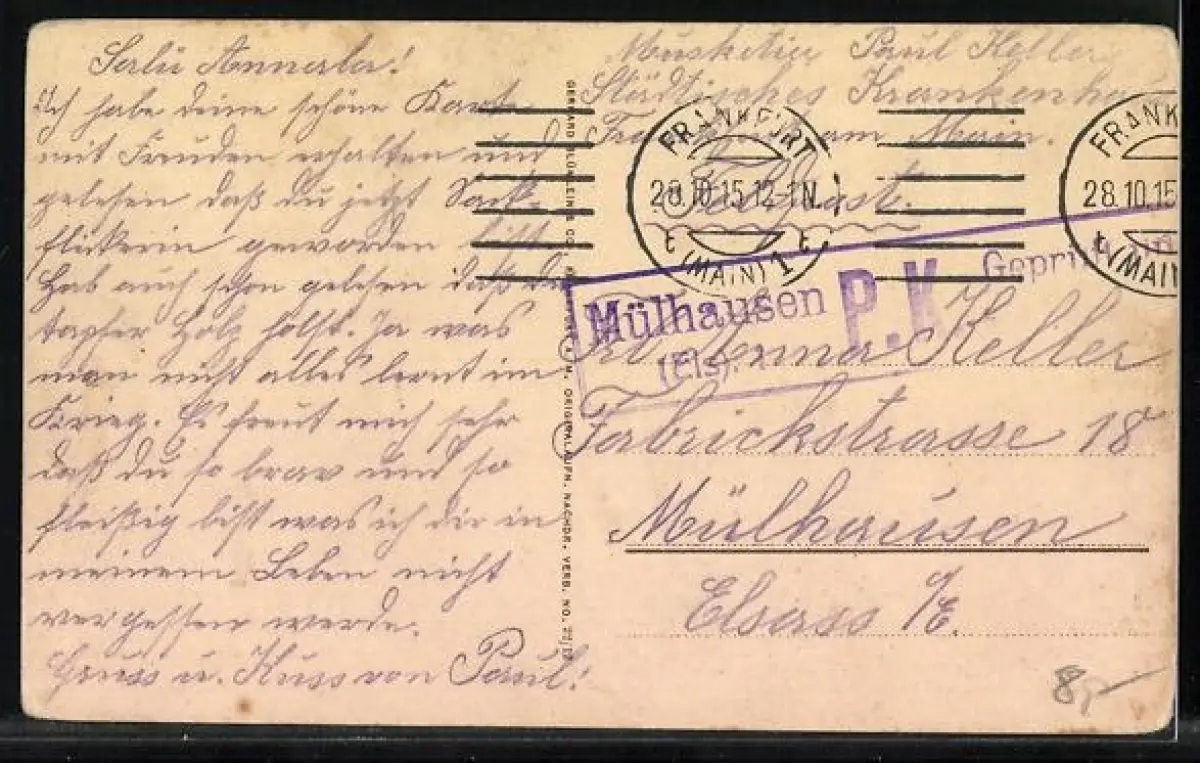 Salü Annerla!
Ich habe deine schöne Karte
mit Freuden erhalten und
gelesen daß du jetzt Sack-
flickerin geworden bist.
Hab auch schon gelesen daß du
tapfer Holz holst. Ja was
man nicht alles lernt im
Krieg. Es freut mich sehr
daß du so brav und so
fleißig bist was ich dir in
meinem Leben nicht
vergessen werde.
Gruss u. Kuss von Paul!
Musketier Paul Keller
Städtisches Krankenha
am Main.
Feldpost.
FRANKFURT
28.10.15.12-1N.
(MAIN) 1
t t
FRANK
28.10.15
t (MAIN
Mülhausen P.K. Geprüft
(Els).
Anna Keller
Fabrickstrasse 18
Mülhausen
Elsass i/E.
ORIGINALAUFN. NACHDR. VERB. NO.
8,-